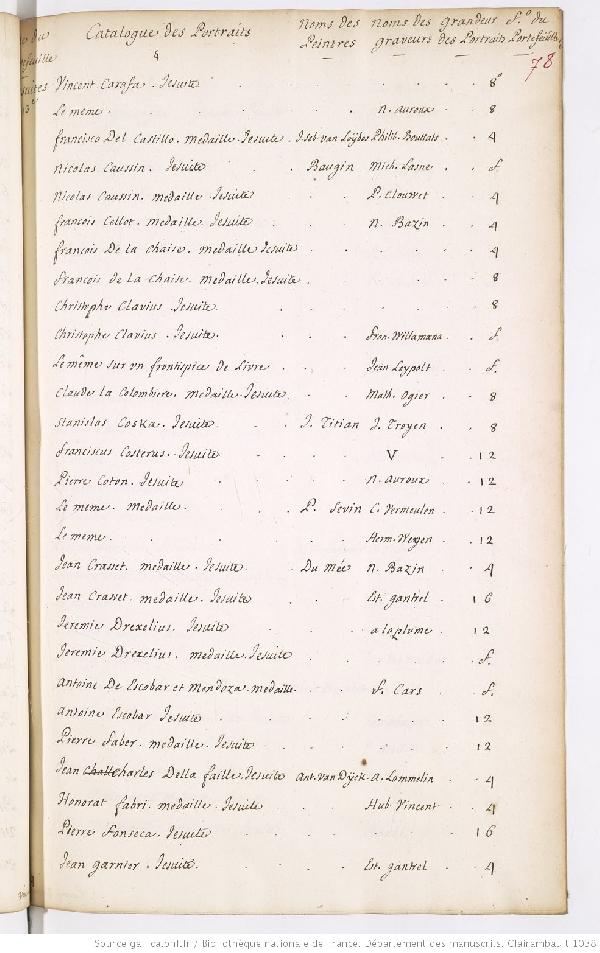 Catalogue des Portraits Noms des Peintres noms des graveurs grandeur des Portraits f.º du Portefeuille
78
Vincent Carafa. Jesuite 8º
Le même. n. auroux. 8
francisco Del Castillo. medaille. Jesuite. Philib. Bouttats. 4
Nicolas Caussin. Jesuite Baugin Mich. Lasne. f.
Nicolas Caussin. medaille Jesuite P. Clouwet 4
françois Collot. medaille Jesuite n. Bazin 4
françois De la Chaise. medaille Jesuite 4
françois de la Chaise. medaille. Jesuite. 8
Christophe Clavius Jesuite. 8
Christophe Clavius. Jesuite. fran. Willamana. f.
Le même sur vn frontispice de Livre. Jean Leypolt. f.
Claude la Colombiere. medaille. Jesuite. Math. Ogier. 8
Stanislas Coska. Jesuite. J. Titian J. Troyen. 8
franciscus Costerus. Jesuite V 12
Pierre Coton. Jesuite n. auroux. 12
Le même. medaille. P. Sevin C. Vermeulen. 12
Le même. Herm. Weyen. 12
Jean Crasset. medaille. Jesuite Du mée n. Bazin. 4
Jean Crasset. medaille. Jesuite Est. gantrel. 16
Jeremie Drexelius. Jesuite a la plume. 12
Jeremie Drexelius. medaille. Jesuite f.
Antoine De Escobar et Mendoza. medaille. f. Cars. f.
Antoine Escobar Jesuite 12
Pierre faber. medaille. Jesuite. 12
Jean Charles Della faille. Jesuite ant. van Dyck. a. Lommelin 4
Honorat fabri. medaille. Jesuite Hub. Vincent. 4
Pierre fonseca. Jesuite 16
Jean garnier. Jesuite. Est. gantrel. 4
Source gallica.bnf.fr / Bibliothèque nationale de France. Département des manuscrits. Clairambault 1038